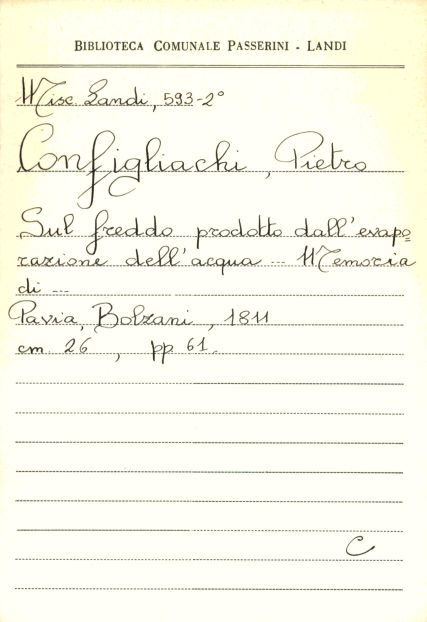 BIBLIOTECA COMUNALE PASSERINI - LANDI
Misc Landi, 593-2°
Configliachi, Pietro
Sul freddo prodotto dall'evapo=
razione dell'acqua ... Memoria
di ...
Pavia, Bolzani, 1811
cm. 26, pp 61.
C